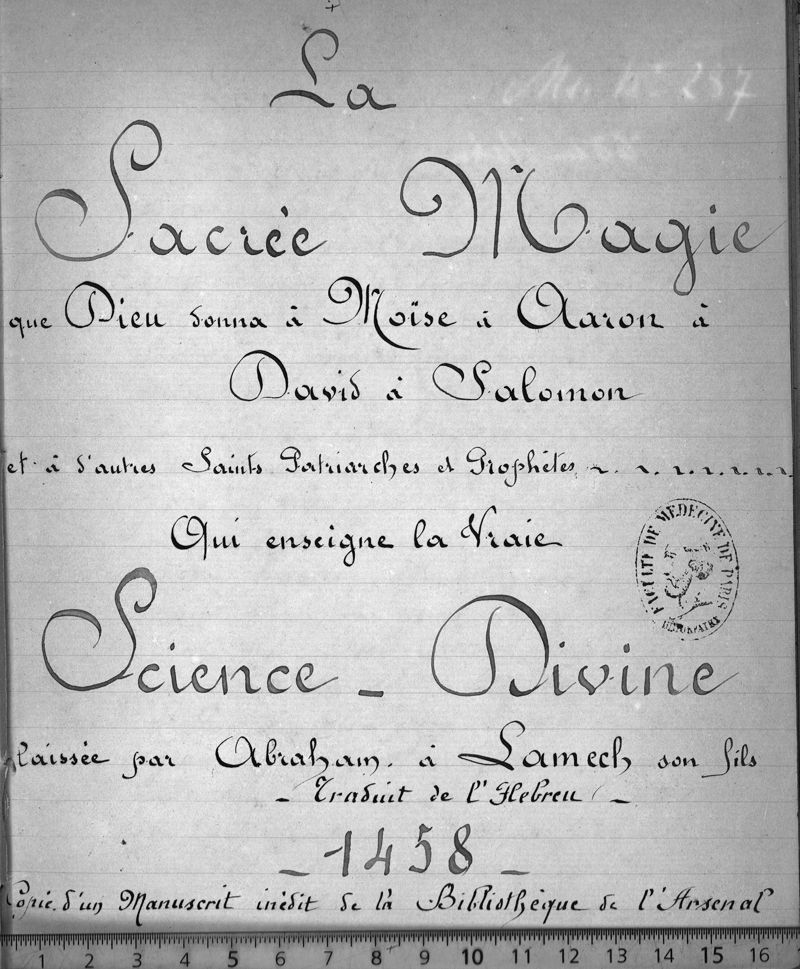 La
Sacrée Magie
que Dieu donna à Moïse à Aaron à
David à Salomon
et à d'autres Saints Patriarches et Prophètes
Qui enseigne la Vraie
FACULTÉ DE MÉDECINE DE PARIS
Science - Divine
laissée par Abraham à Lamech son fils
- Traduit de l'Hebreu -
- 1458 -
Copie d'un Manuscrit inédit de la Bibliothèque de l'Arsenal
1 2 3 4 5 6 7 8 9 10 11 12 13 14 15 16